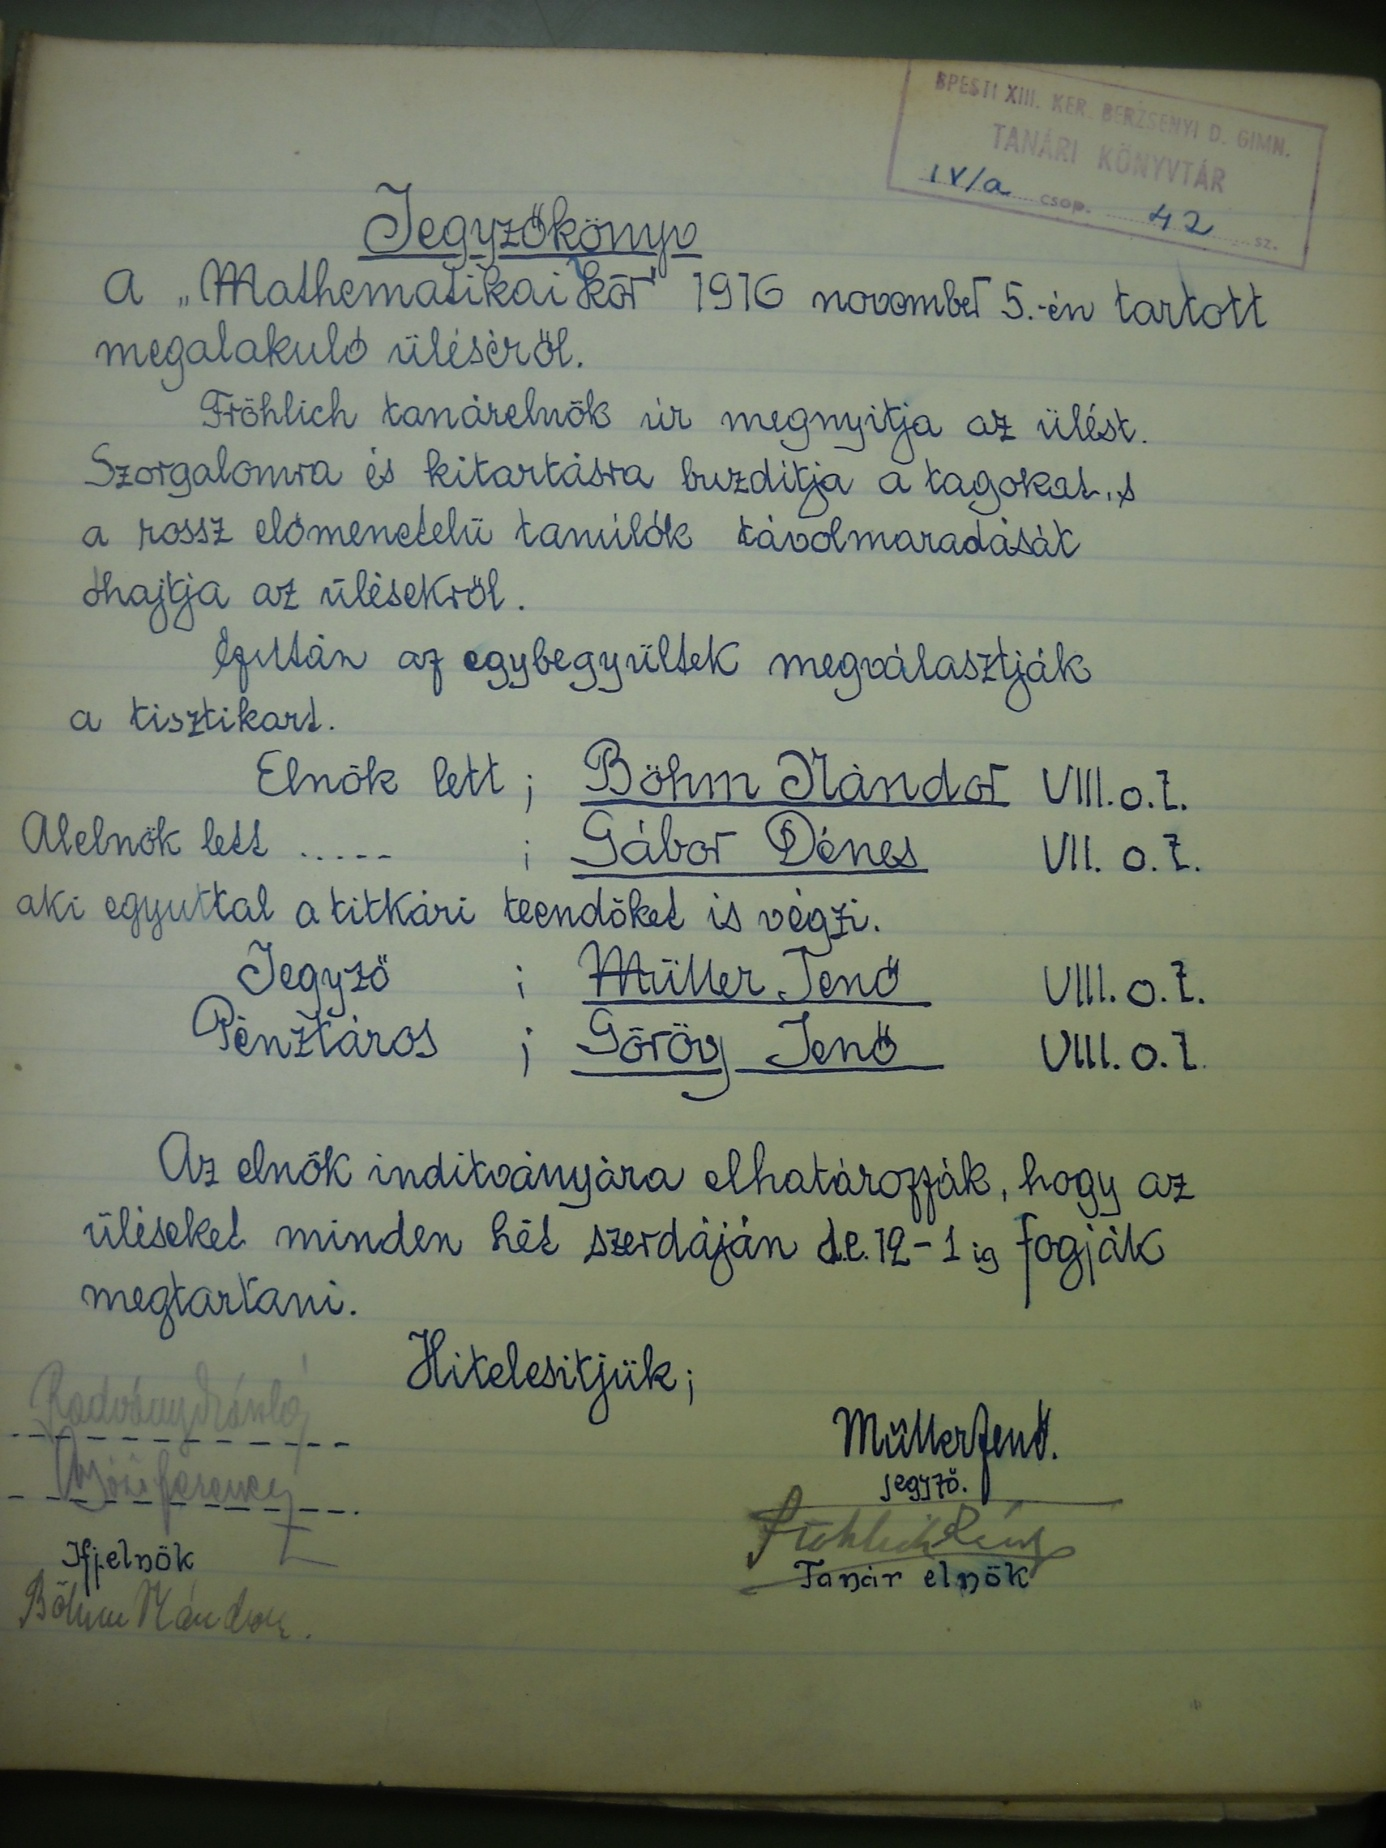 BPESTI XIII. KER. BERZSENYI D. GIMN.
TANÁRI KÖNYVTÁR
IV/a csop. 42 sz.
Jegyzőkönyv
A „Mathematikai kör" 1916 november 5.-én tartott
megalakuló üléséről.
Fröhlich tanárelnök úr megnyitja az ülést.
Szorgalomra és kitartásra buzdítja a tagokat, s
a rossz előmenetelü tanúlók távolmaradását
óhajtja az ülésekről.
Ezután az egybegyültek megválasztják
a tisztikart.
Elnök lett ; Böhm Nándor VIII. o. t.
Alelnök lett ..... ; Gábor Dénes VII. o. t.
aki egyuttal a titkári teendőket is végzi.
Jegyző ; Müller Jenő VIII. o. t.
Pénztáros ; Görög Jenő VIII. o. t.
Az elnök inditványára elhatározzák, hogy az
üléseket minden hét szerdáján d.e. 12-1 ig fogják
megtartani.
Hitelesitjük ;
Radványi László
Ferenc
Ifj. elnök
Böhm Nándor.
Müller Jenő.
jegyző.
Fröhlich
Tanár elnök